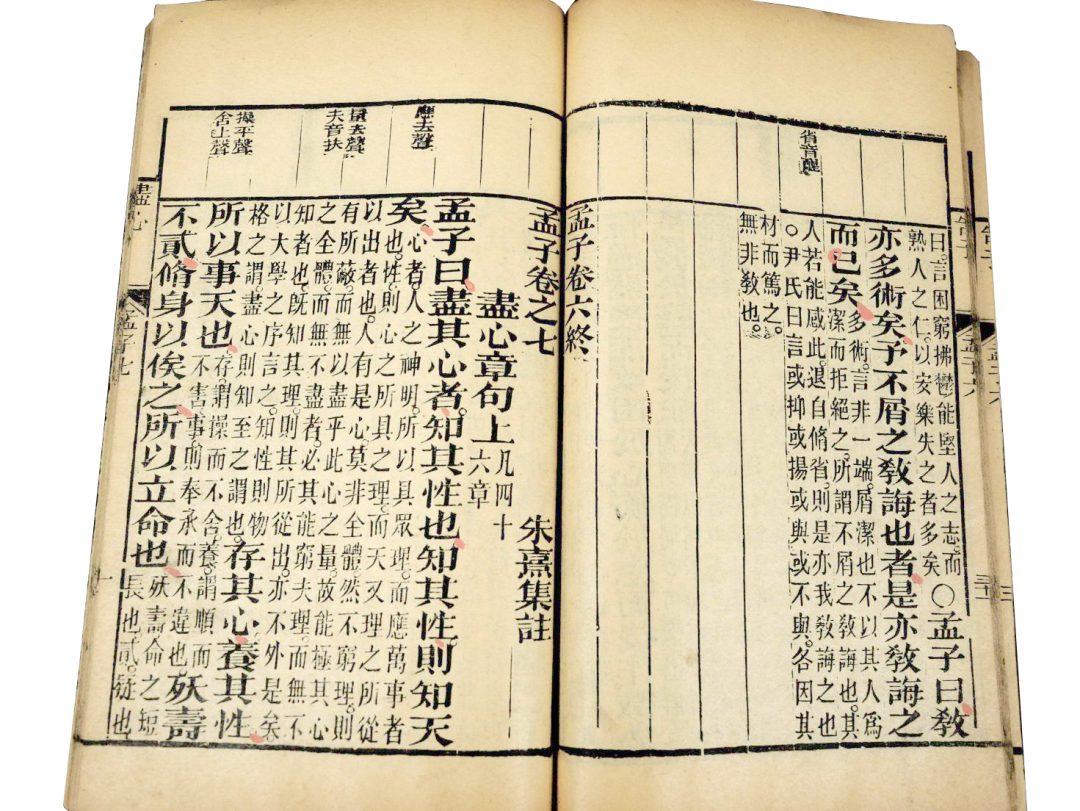 省音醒
曰。言困窮拂鬱能堅人之志。而
熟人之仁。以安樂失之者多矣
○孟子曰教
亦多術矣。予不屑之敎誨也者。是亦敎誨之
而已矣。
多術。言非一端。屑潔也不以其人爲
潔而拒絕之。所謂不屑之敎誨也。其
人若能感此退自脩省則是亦我敎誨之也
○尹氏曰言或抑或揚或與或不與。各因其
材而篤之。
無非敎也。
孟子卷六終
應去聲
量去聲
夫音扶
操平聲
舍上聲
孟子卷之七
朱熹集註
盡心章句上
凡四十
六章
孟子曰。盡其心者。知其性也。知其性。則知天
矣。
心者。人之神明。所以具眾理。而應萬事者
也。性則心之所具之理。而天又理之所從
以出者也。人有是心莫非全體。然不窮理。則
有所蔽。而無以盡乎此心之量。故能極其心
之全體。而無不盡者。必其能窮夫理而無不
知者也。旣知其理。則其所從出。亦不外是矣。
以大學之序言之。知性則物
格之謂。盡心則知至之謂也。
存其心。養其性。
所以事天也。
存謂操而不舍。養謂順而
不害。事則奉承而不違也。
殀壽
不貳。脩身以俟之。所以立命也。
殀壽命之短
長也。貳。疑也
盡心
孟子七
一